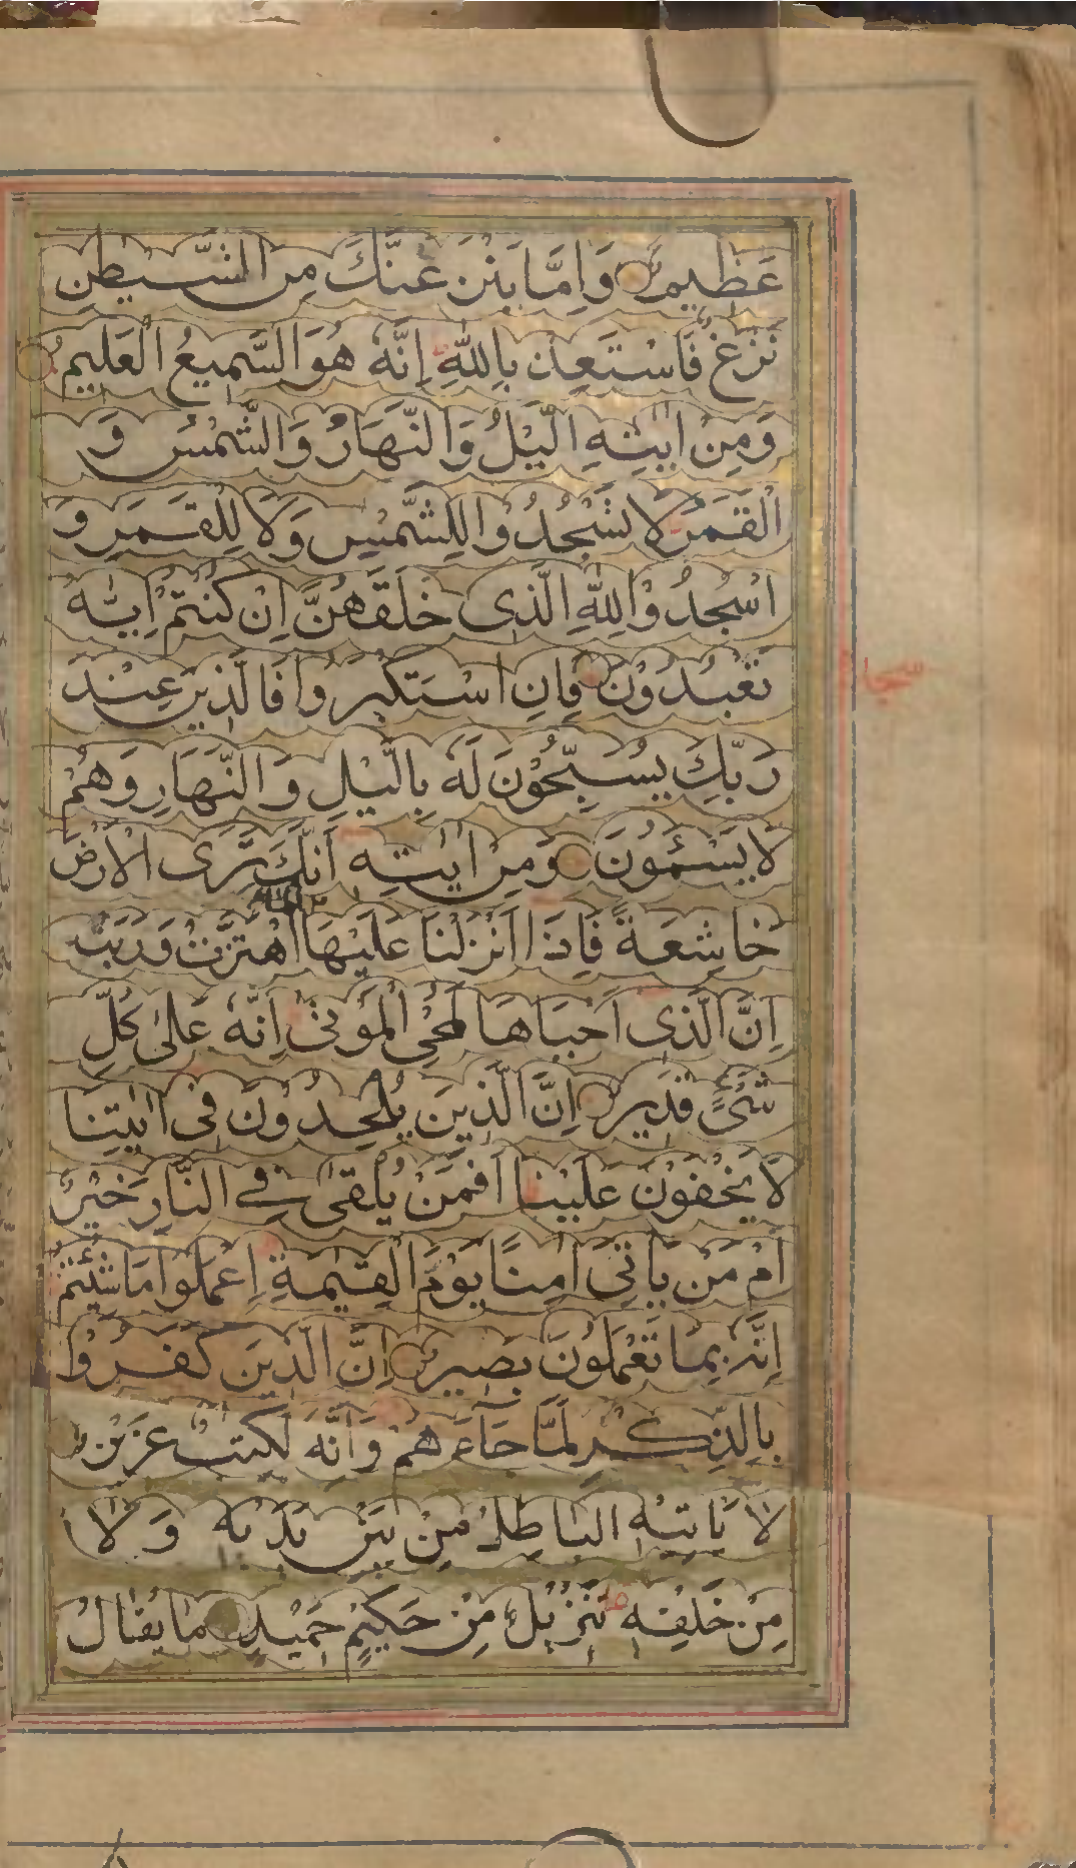 عَظِيمٍ وَاِمَّا يَنْزَغَنَّكَ مِنَ الشَّيْطٰنِ
نَزْغٌ فَاسْتَعِذْ بِاللّٰهِ اِنَّهٗ هُوَ السَّمِيعُ الْعَلِيمُ
وَمِنْ اٰيٰتِهِ الَّيْلُ وَالنَّهَارُ وَالشَّمْسُ وَ
الْقَمَرُ لَا تَسْجُدُوْا لِلشَّمْسِ وَلَا لِلْقَمَرِ وَ
اسْجُدُوْا لِلّٰهِ الَّذِى خَلَقَهُنَّ اِنْ كُنْتُمْ اِيَّاهُ
تَعْبُدُوْنَ فَاِنِ اسْتَكْبَرُوا فَالَّذِيْنَ عِنْدَ
رَبِّكَ يُسَبِّحُوْنَ لَهٗ بِالَّيْلِ وَالنَّهَارِ وَهُمْ
لَا يَسْئَمُوْنَ وَمِنْ اٰيٰتِهٖ اَنَّكَ تَرَى الْاَرْضَ
خَاشِعَةً فَاِذَا اَنْزَلْنَا عَلَيْهَا الْمَاءَ اهْتَزَّتْ وَرَبَتْ
اِنَّ الَّذِى اَحْيَاهَا لَمُحْىِ الْمَوْتٰى اِنَّهٗ عَلٰى كُلِّ
شَىْءٍ قَدِيرٌ اِنَّ الَّذِيْنَ يُلْحِدُوْنَ فِى اٰيٰتِنَا
لَا يَخْفَوْنَ عَلَيْنَا اَفَمَنْ يُلْقٰى فِى النَّارِ خَيْرٌ
اَمْ مَنْ يَاْتِى اٰمِنًا يَوْمَ الْقِيٰمَةِ اِعْمَلُوا مَا شِئْتُمْ
اِنَّهٗ بِمَا تَعْمَلُوْنَ بَصِيرٌ اِنَّ الَّذِيْنَ كَفَرُوْا
بِالذِّكْرِ لَمَّا جَاءَهُمْ وَاِنَّهٗ لَكِتٰبٌ عَزِيزٌ
لَا يَاْتِيْهِ الْبَاطِلُ مِنْ بَيْنِ يَدَيْهِ وَلَا
مِنْ خَلْفِهٖ تَنْزِيْلٌ مِنْ حَكِيْمٍ حَمِيْدٍ مَا يُقَالُ